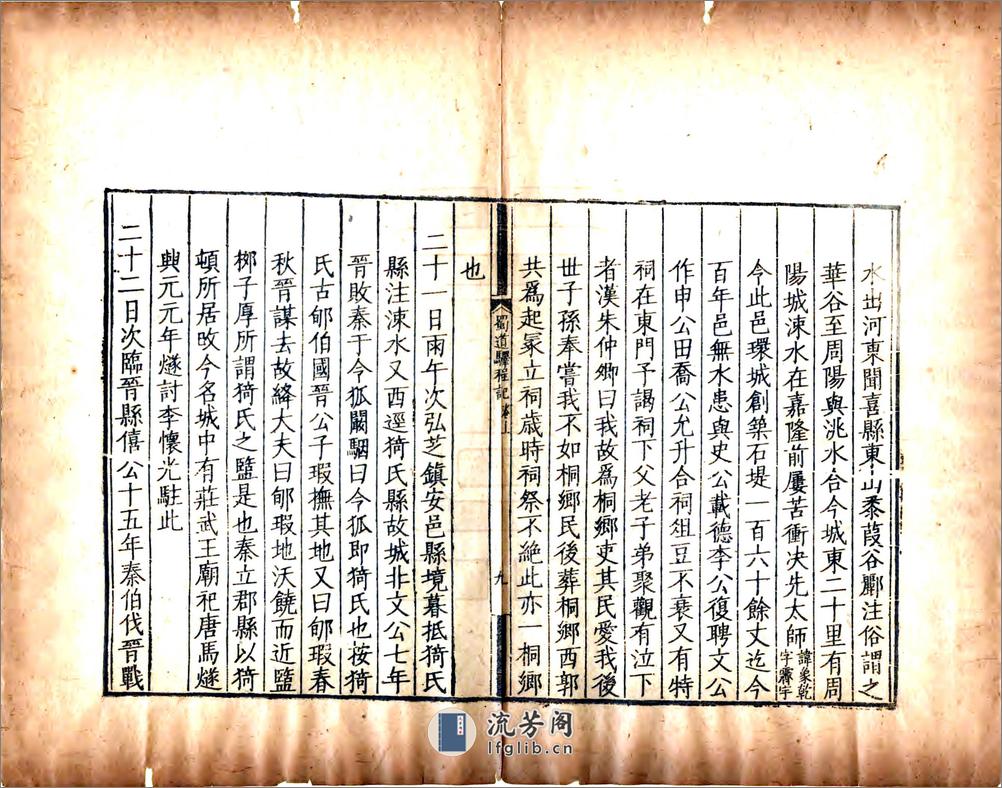 水出河東聞喜縣東山黍葭谷酈注俗謂之
華谷至周陽與洮水合今城東二十里有周
陽城涑水在嘉隆前屢苦衝決先太師諱象乾字霽宇
今此邑環城創築石堤一百六十餘丈迄今
百年邑無水患與史公載德李公復聘文公
作申公田喬公允升合祠俎豆不衰又有特
祠在東門予謁祠下父老子弟聚觀有泣下
者漢朱仲卿曰我故為桐鄉吏其民愛我後
世子孫奉嘗我不如桐鄉民後葬桐鄉西郭
共爲起冡立祠歳時祠祭不絶此亦一桐鄉
蜀道驛程記 卷上
九
也
二十一日雨午次弘芝鎮安邑縣境暮抵猗氏
縣注涑水又西逕猗氏縣故城北文公七年
晉敗秦于令狐闞駰曰令狐即猗氏也按猗
氏古郇伯國晉公子瑕撫其地又曰郇瑕春
秋晉謀去故絳大夫曰郇瑕地沃饒而近盬
栁子厚所謂猗氏之鹽是也秦立郡縣以猗
頓所居故今名城中有莊武王廟祀唐馬燧
興元元年燧討李懷光駐此
二十二日次臨晉縣僖公十五年秦伯伐晉戰
流芳阁
lfglib.cn